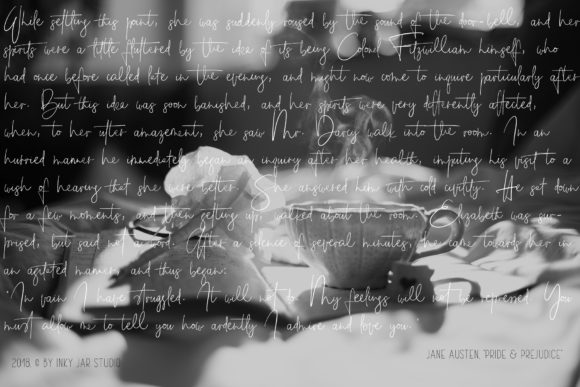 While settling this point, she was suddenly roused by the sound of the door-bell, and her
spirits were a little fluttered by the idea of its being Colonel Fitzwilliam himself, who
had once before called late in the evening, and might now come to inquire particularly after
her. But this idea was soon banished, and her spirits were very differently affected,
when, to her utter amazement, she saw Mr. Darcy walk into the room. In an
hurried manner he immediately began an inquiry after her health, imputing his visit to a
wish of hearing that she were better. She answered him with cold civility. He sat down
for a few moments, and then getting up, walked about the room. Elizabeth was sur-
prised, but said not a word. After a silence of several minutes, he came towards her in
an agitated manner, and thus began:
"In vain I have struggled. It will not do. My feelings will not be repressed. You
must allow me to tell you how ardently I admire and love you."
JANE AUSTEN, "PRIDE & PREJUDICE"
2018, © BY INKY JAR STUDIO